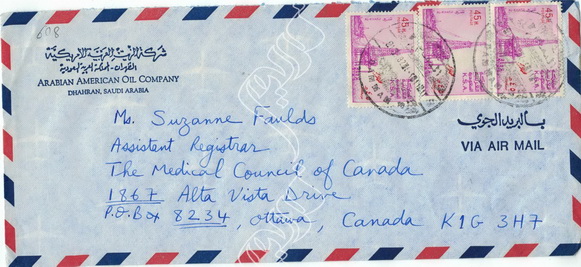 608
شركة الزيت العربية الأمريكية
الظهران - المملكة العربية السعودية
ARABIAN AMERICAN OIL COMPANY
DHAHRAN, SAUDI ARABIA
بالبريد الجوي
VIA AIR MAIL
Ms. Suzanne Faulds
Assistent Registrar
The Medical Council of Canada
1867 Alta Vista Drive
P.O.Box 8234, Ottawa, Canada K1G 3H7